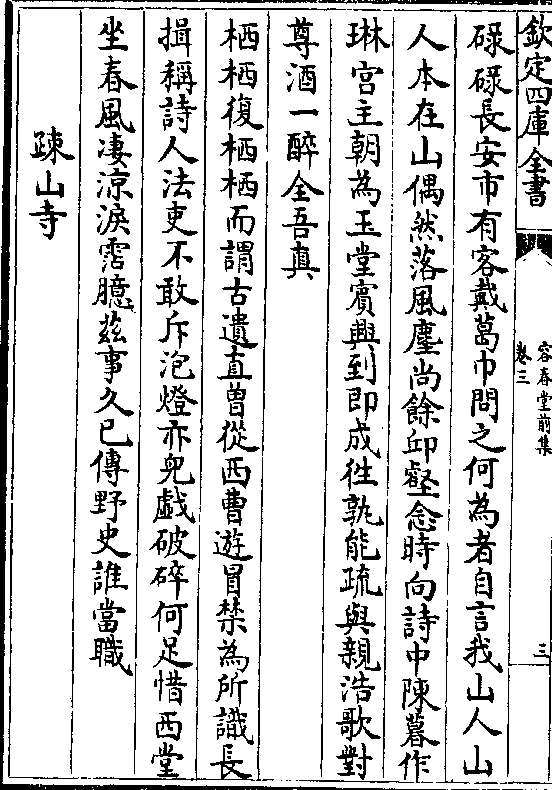 欽定四庫全書
容春堂前集
卷三
三
碌碌長安市有客戴葛巾問之何為者自言我山人山
人本在山偶然落風塵尚餘邱壑念時向詩中陳暮作
琳宫主朝為玉堂賓興到即成徃孰能疏與親浩歌對
尊酒一醉全吾真
栖栖復栖栖而謂古遺直曽從西曹遊冒禁為所識長
揖稱詩人法吏不敢斥泡燈亦兒戯破碎何足惜西堂
坐春風凄涼淚霑臆兹事久已傳野史誰當職
疎山寺